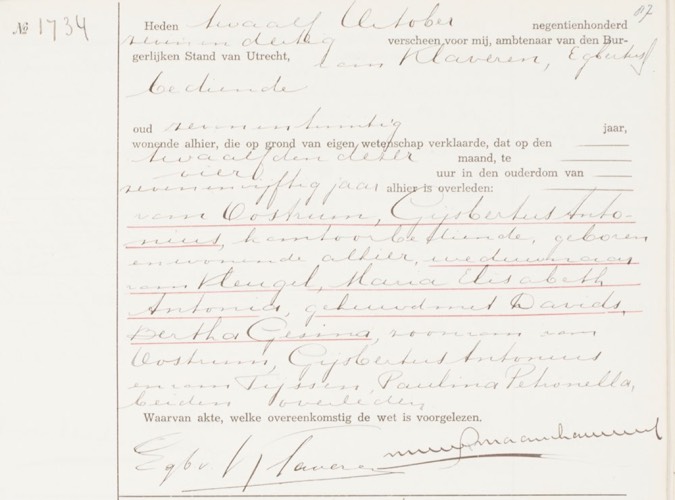 № 1734
87
Heden twaalf October negentienhonderd
zeven en dertig verscheen voor mij, ambtenaar van den Bur-
gerlijken Stand van Utrecht, van Klaveren, Egbertus
bediende
oud zeven en twintig jaar,
wonende alhier, die op grond van eigen wetenschap verklaarde, dat op den
twaalfden dezer maand, te
vier uur in den ouderdom van
zeven en vijftig jaar alhier is overleden:
van Oostrum, Gijsbertus Anto-
nius, kantoorbediende, geboren
en wonende alhier, weduwnaar
van Kleugel, Maria Elisabeth
Antonia, gehuwd met Davids,
Bertha Gesina, zoon van van
Oostrum, Gijsbertus Antonius
en van Tijssen, Paulina Petronella,
beiden overleden
Waarvan akte, welke overeenkomstig de wet is voorgelezen.
Egb. v. Klaveren